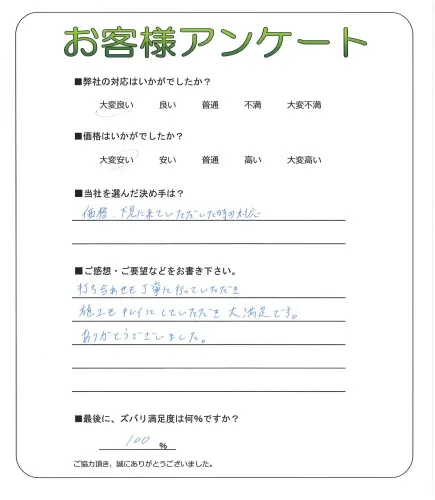 お客様アンケート
■弊社の対応はいかがでしたか？
大変良い 良い 普通 不満 大変不満
■価格はいかがでしたか？
大変安い 安い 普通 高い 大変高い
■当社を選んだ決め手は？
価格、下見に来ていただいた時の対応
■ご感想・ご要望などをお書き下さい。
打ち合わせも丁寧に行っていただき
施工もキレイにしていただき大満足です。
ありがとうございました。
■最後に、ズバリ満足度は何％ですか？
100 %
ご協力頂き、誠にありがとうございました。